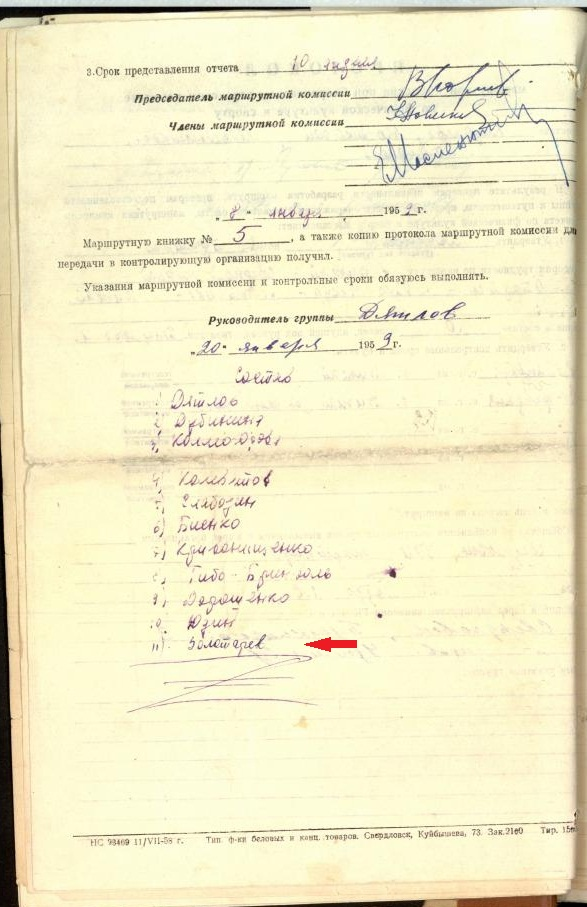 3.Срок представления отчета 10
Председатель маршрутной комиссии
Члены маршрутной комиссии
"8" января 1959 г.
Маршрутную книжку № 5, а также копию протокола маршрутной комиссии для
передачи в контролирующую организацию получил.
Указания маршрутной комиссии и контрольные сроки обязуюсь выполнять.
Руководитель группы Дятлов
"20" января 1959 г.
Состав
1) Дятлов
2) Дубинина
3) Колмогорова
4) Колеватов
5) Слободин
6) Биенко
7) Кривонищенко
8) Тибо-Бриньоль
9) Дорошенко
10 Юдин
11) Золотарев
НС 23469 11/VII-58 г. Тип. ф-ки беловых и канц. товаров. Свердловск, Куйбышева, 73. Зак.2160 Тир.